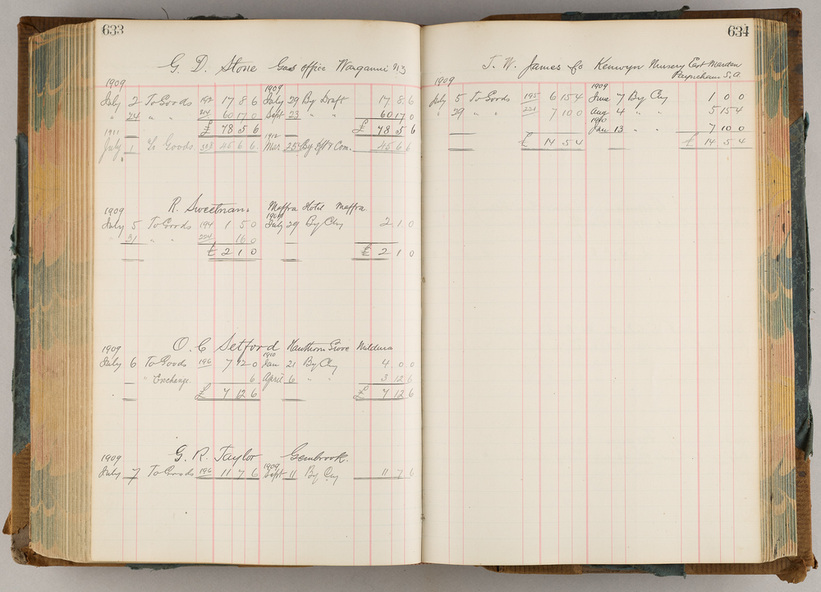 633
G. D. Stone Gas Office Wanganui NZ
1909 1909
July 2 To Goods 192 17 8 6 July 29 By Draft 17 8 6
" 24 " " 60 17 0 Sept 23 " " 60 17 0
£ 78 5 6 £ 78 5 6
1911 1912
July 1 To Goods 45 6 6 Mar 25 By Com. 45 6 6
R. Sweetnam Maffra Hotel Maffra
1909 1909
July 5 To Goods 194 1 5 0 July 29 By Chq 2 1 0
" 31 " " 16 0
£ 2 1 0 £ 2 1 0
O. C. Setford Hawthorn Grove Mildura
1909 1910
July 6 To Goods 196 7 12 0 Jan 21 By Chq 4 0 0
" Exchange 6 April 6 " " 3 12 6
£ 7 12 6 £ 7 12 6
G. R. Taylor Gembrook
1909 1909
July 7 To Goods 196 11 7 6 Sept 11 By Chq 11 7 6
634
J. W. James & Co Kenwyn Nursery East Marden
Payneham S.A
1909 1909
July 5 To Goods 195 6 15 4 June 7 By Chq 1 0 0
" 29 " " 7 10 0 Aug 4 " " 5 15 4
1910
Jan 13 " " 7 10 0
£ 14 5 4 £ 14 5 4